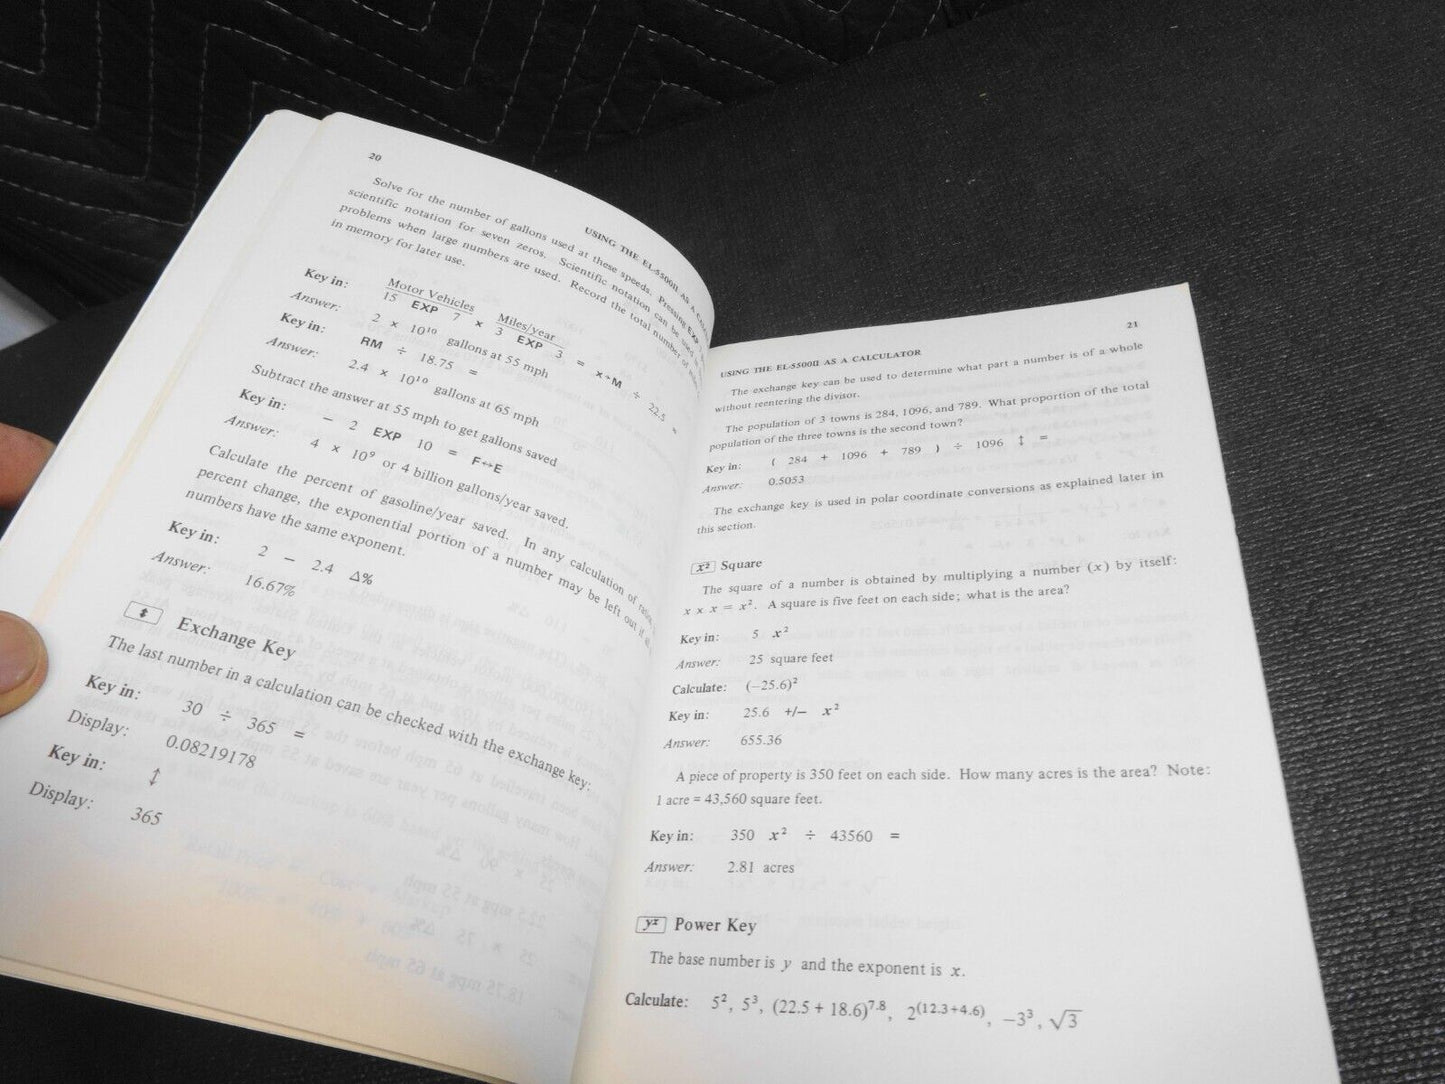 20
USING THE EL-5500II AS A
Solve for the number of gallons used at these speeds. Pressing EXP
scientific notation for seven zeros. Scientific notation can be used in
problems when large numbers are used. Record the total number of
in memory for later use.
Motor Vehicles Miles/year
Key in: 15 EXP 7 × 3 EXP 3 = x→M ÷ 22.5 =
Answer: 2 × 10¹⁰ gallons at 55 mph
Key in: RM ÷ 18.75 =
Answer: 2.4 × 10¹⁰ gallons at 65 mph
Subtract the answer at 55 mph to get gallons saved
Key in: − 2 EXP 10 = F↔E
Answer: 4 × 10⁹ or 4 billion gallons/year saved.
Calculate the percent of gasoline/year saved. In any calculation of
percent change, the exponential portion of a number may be left out if
numbers have the same exponent.
Key in: 2 − 2.4 Δ%
Answer: 16.67%
↕ Exchange Key
The last number in a calculation can be checked with the exchange key:
Key in: 30 ÷ 365 =
Display: 0.08219178
Key in: ↕
Display: 365
21
USING THE EL-5500II AS A CALCULATOR
The exchange key can be used to determine what part a number is of a whole
without reentering the divisor.
The population of 3 towns is 284, 1096, and 789. What proportion of the total
population of the three towns is the second town?
Key in: ( 284 + 1096 + 789 ) ÷ 1096 ↕ =
Answer: 0.5053
The exchange key is used in polar coordinate conversions as explained later in
this section.
x² Square
The square of a number is obtained by multiplying a number (x) by itself:
x × x = x². A square is five feet on each side; what is the area?
Key in: 5 x²
Answer: 25 square feet
Calculate: (−25.6)²
Key in: 25.6 +/− x²
Answer: 655.36
A piece of property is 350 feet on each side. How many acres is the area? Note:
1 acre = 43,560 square feet.
Key in: 350 x² ÷ 43560 =
Answer: 2.81 acres
yˣ Power Key
The base number is y and the exponent is x.
Calculate: 5², 5³, (22.5 + 18.6)⁷·⁸, 2⁽¹²·³⁺⁴·⁶⁾, −3³, √3